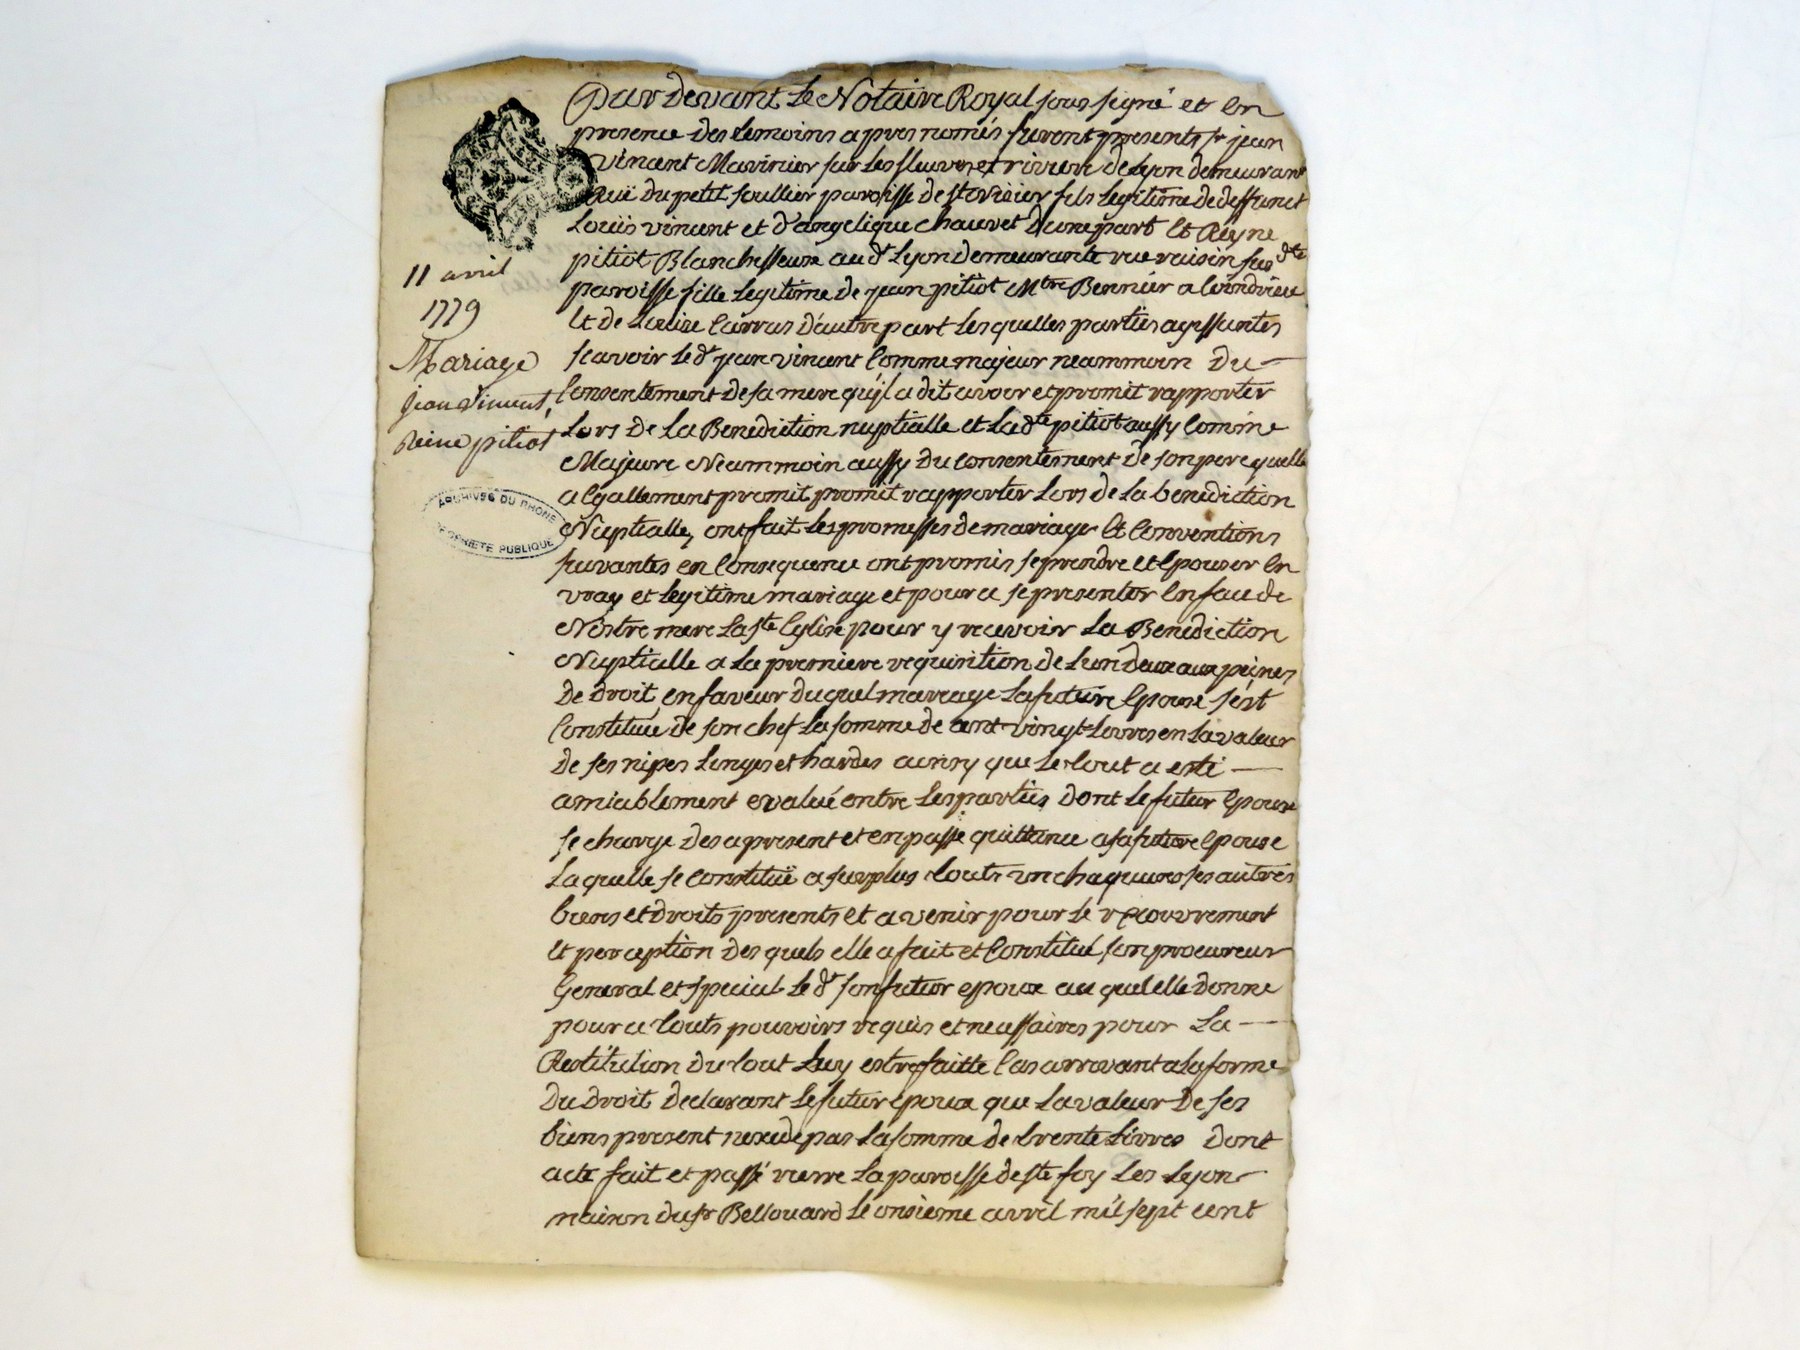 Par devant Le Notaire Royal sous signé et en
presence des temoins apres només furent presents sr jean
vincent Marinier sur Les fleuves et riviere de Lyon demeurant
Ruë du petit soullier paroisse de st vizier fils Legitime de deffunct
Loüis vincent et d'angelique chauvet d'une part Et Reyne
pitiot Blanchisseuse aud.t Lyon demeurante rue raisin sus dte
paroisse fille Legitime de jean pitiot Mtre Bennier a Coindrieu
Et de d'autre part Lesquelles parties agissantes
scavoir Le dt jean vincent Comme majeur neammoin du
Consentement de sa mere qu'il a dit avoir et promit rapporter
Lors de La Benediction nuptialle et La dte pitiot aussy Comme
Majeure Neammoin aussy du Consentement de son pere quelle
a Egallement promit promit rapporter Lors de La benediction
Nuptialle, ont fait Les promesses de mariage Et Conventions
suivantes en Consequence ont promis se prendre et Epouser En
vray et Legitime mariage et pour ce se presenter En face de
Nostre mere La ste Eglise pour y recevoir La Benediction
Nuptialle a La premiere requisition de L'un deux aux peines
de droit, en faveur duquel mariage La future Epouse s'est
Constituée de son chef La somme de cent vingt Livres en La valeur
de ses nipes Linges et hardes ainsy que Le tout a esté
amiablement evalué entre Les parties dont Le futur Epoux
se charge des a present et en passe quittance a sa future Epouse
La quelle se constituë a surplus touts un chaquuns ses autres
biens et droits presents et avenir pour Le recouvrement
Et perception des quels elle a fait et Constitué son procureur
General et special Le dt son futur epoux au quel elle donne
pour ce touts pouvoirs requis et necessaires pour La
Restitution du tout Luy estre faitte Cas arrivant a La forme
du droit declarant Le futur epoux que La valeur de ses
biens present nexede pas La somme de trente Livres dont
acte fait et passé rierre La paroisse de ste foy Les Lyon
maison du sr Bellouard Le onsieme avril mil sept cent
11 avril
1779
Mariage
Jean Vincent,
Reine pitiot
ARCHIVES DU RHONE
PROPRIETE PUBLIQUE